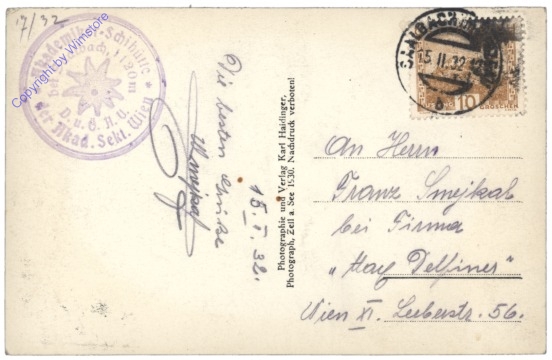 17/32
Akademiker-Schihütte
bei Saalbach, 1120m
D. u. Ö. A. V.
der Akad. Sekt. Wien
Copyright by Winstore
Die besten Grüße
15. II. 32.
Photographie und Verlag Karl Haidinger,
Photograph, Zell a. See 1530. Nachdruck verboten!
SAALBACH
15. II. 32
10
GROSCHEN
An Herrn
Franz Smejkal
bei Firma
„Hay Delfiner"
Wien XI. Leeberstr. 56.